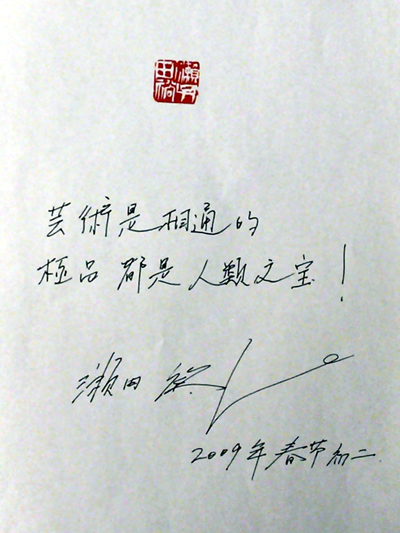 芸術是相通的
極品都是人類文宝！
瀬田
2009年春节初二